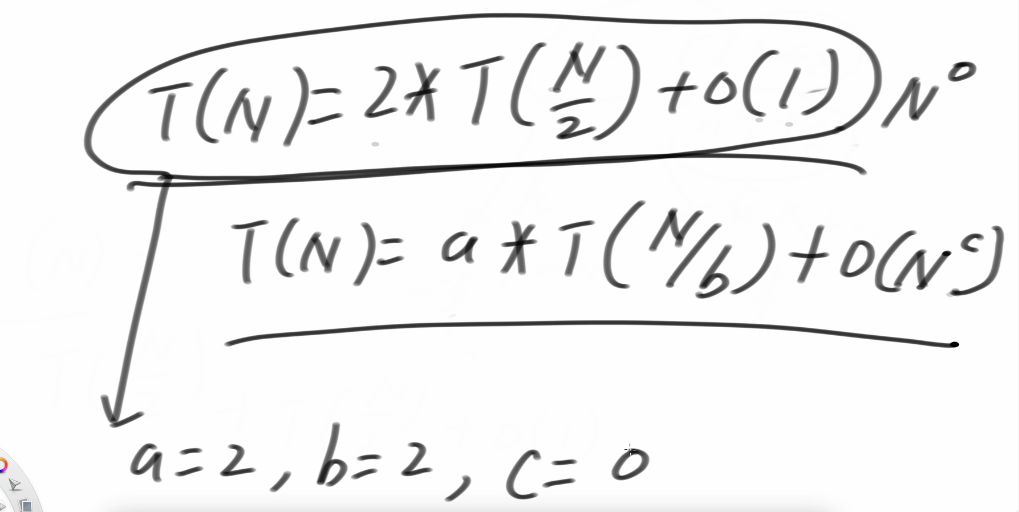 T(N)=2*T(N/2)+O(1) N^0
T(N)=a*T(N/b)+O(N^c)
a=2, b=2, c=0